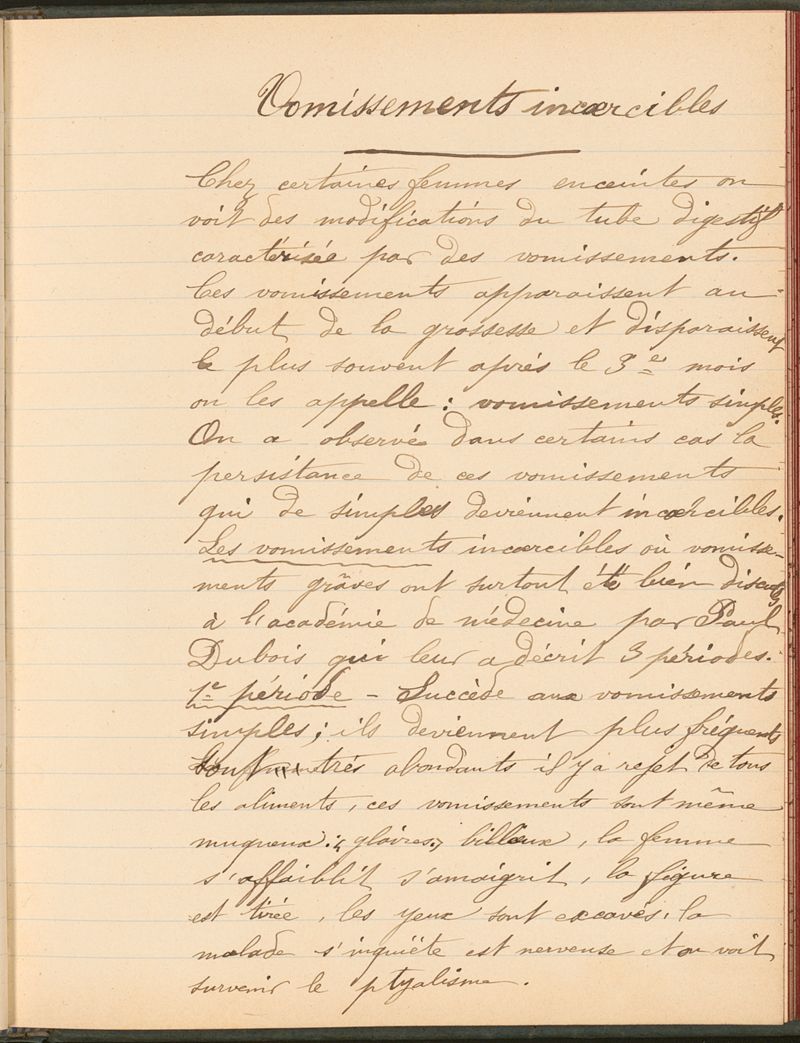 Vomissements incœrcibles
Chez certaines femmes enceintes on
voit des modifications du tube digestif
caractérisée par des vomissements.
Ces vomissements apparaissent au
début de la grossesse et disparaissent
le plus souvent après le 3e mois
on les appelle : vomissements simples.
On a observé dans certains cas la
persistance de ces vomissements
qui de simples deviennent incœrcibles.
Les vomissements incœrcibles où vomisse-
ments grâves ont surtout été bien discutés
à l'académie de médecine par Paul
Dubois qui leur a décrit 3 périodes.
1e période - Succède aux vomissements
simples ; ils deviennent plus fréquents
très abondants il y a rejet de tous
les aliments, ces vomissements sont même
muqueux : "glaires", billeux, la femme
s'affaiblit s'amaigrit, la figure
est tirée, les yeux sont excavés, la
malade s'inquiète est nerveuse et on voit
survenir le ptyalisme.